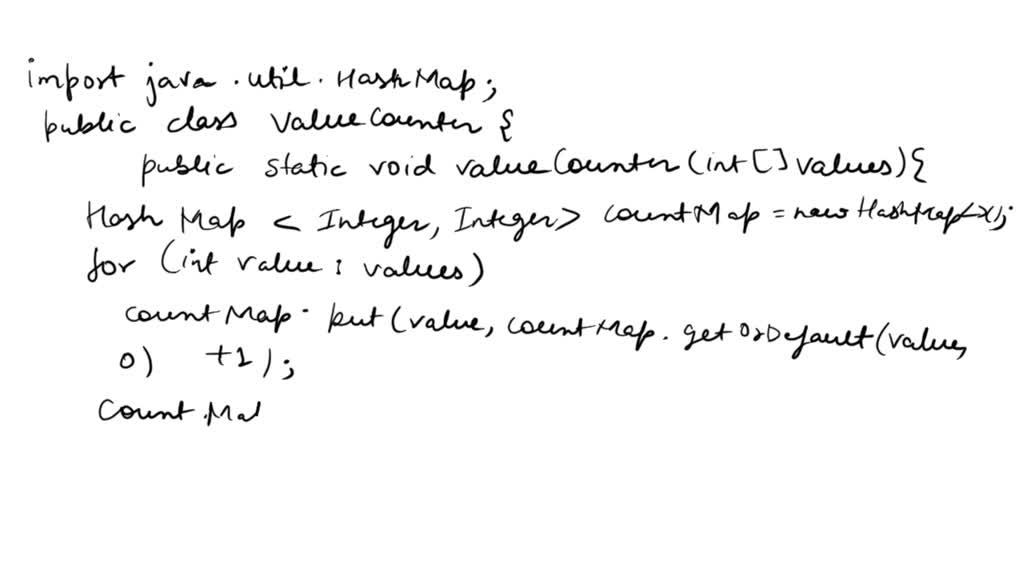 import java.util.HashMap;
public class ValueCounter {
public static void valueCounter (int [] values) {
Hash Map < Integer, Integer> countMap = new HashMap<>();
for (int value : values)
countMap. put (value, countMap. getOrDefault (value,
0) +1);
Count.Ma